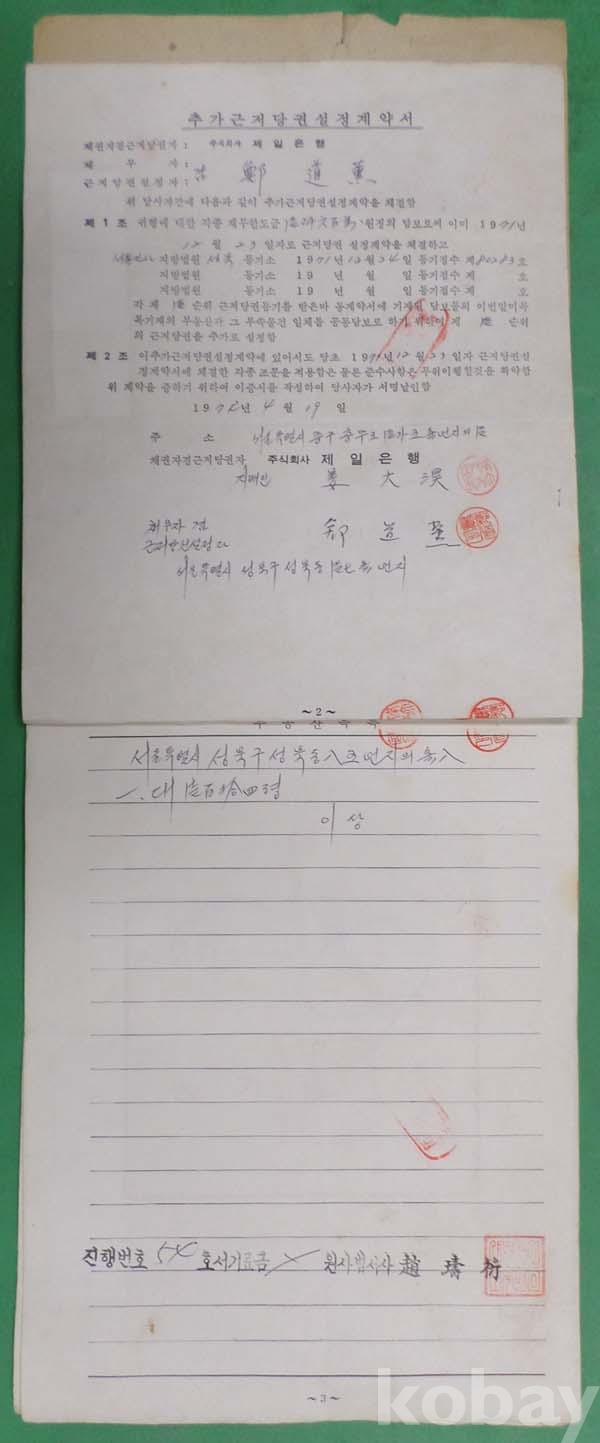 추가근저당권설정계약서
채권자겸근저당권자 : 주식회사 제일은행
채 무 자 :
근저당권설정자 : 鄭 道 薰
위 당사자간에 다음과 같이 추가근저당권설정계약을 체결함
제 1 조 위행에 대한 각종 채무한도금 원정의 담보로써 이미 1971년
12월 23일자로 근저당권 설정계약을 체결하고
지방법원 성북 등기소 1971년 12월 24일 등기접수 제 호
지방법원 등기소 19 년 월 일 등기접수 제 호
지방법원 등기소 19 년 월 일 등기접수 제 호
각 제 순위 근저당권등기를 받은바 동계약서에 기재된 담보물의 이번말미목
록기재의 부동산과 그 부속물건 일체를 공동담보로 하기 위하여 제 순위
의 근저당권을 추가로 설정함
제 2 조 이추가근저당권설정계약에 있어서도 당초 1971년 12월 23일자 근저당권설
정계약서에 체결한 각종 조문을 적용함은 물론 준수사항은 무위이행할것을 확약함
위 계약을 증하기 위하여 이증서를 작성하여 당사자가 서명날인함
197 년 4 월 19 일
주 소 서울특별시 중구 충무로
채권자겸근저당권자 주식회사 제일은행
지배인 姜 大 湨
채무자 겸
근저당권설정자 鄭 道 薰
서울특별시 성북구 성북동 번지
~2~
부동산목록
서울특별시 성북구 성북동 번지의
一. 대 壹百拾四평
이 상
진행번호 54 호서기료금 원사법서사 趙 璹 衍
~3~
kobay